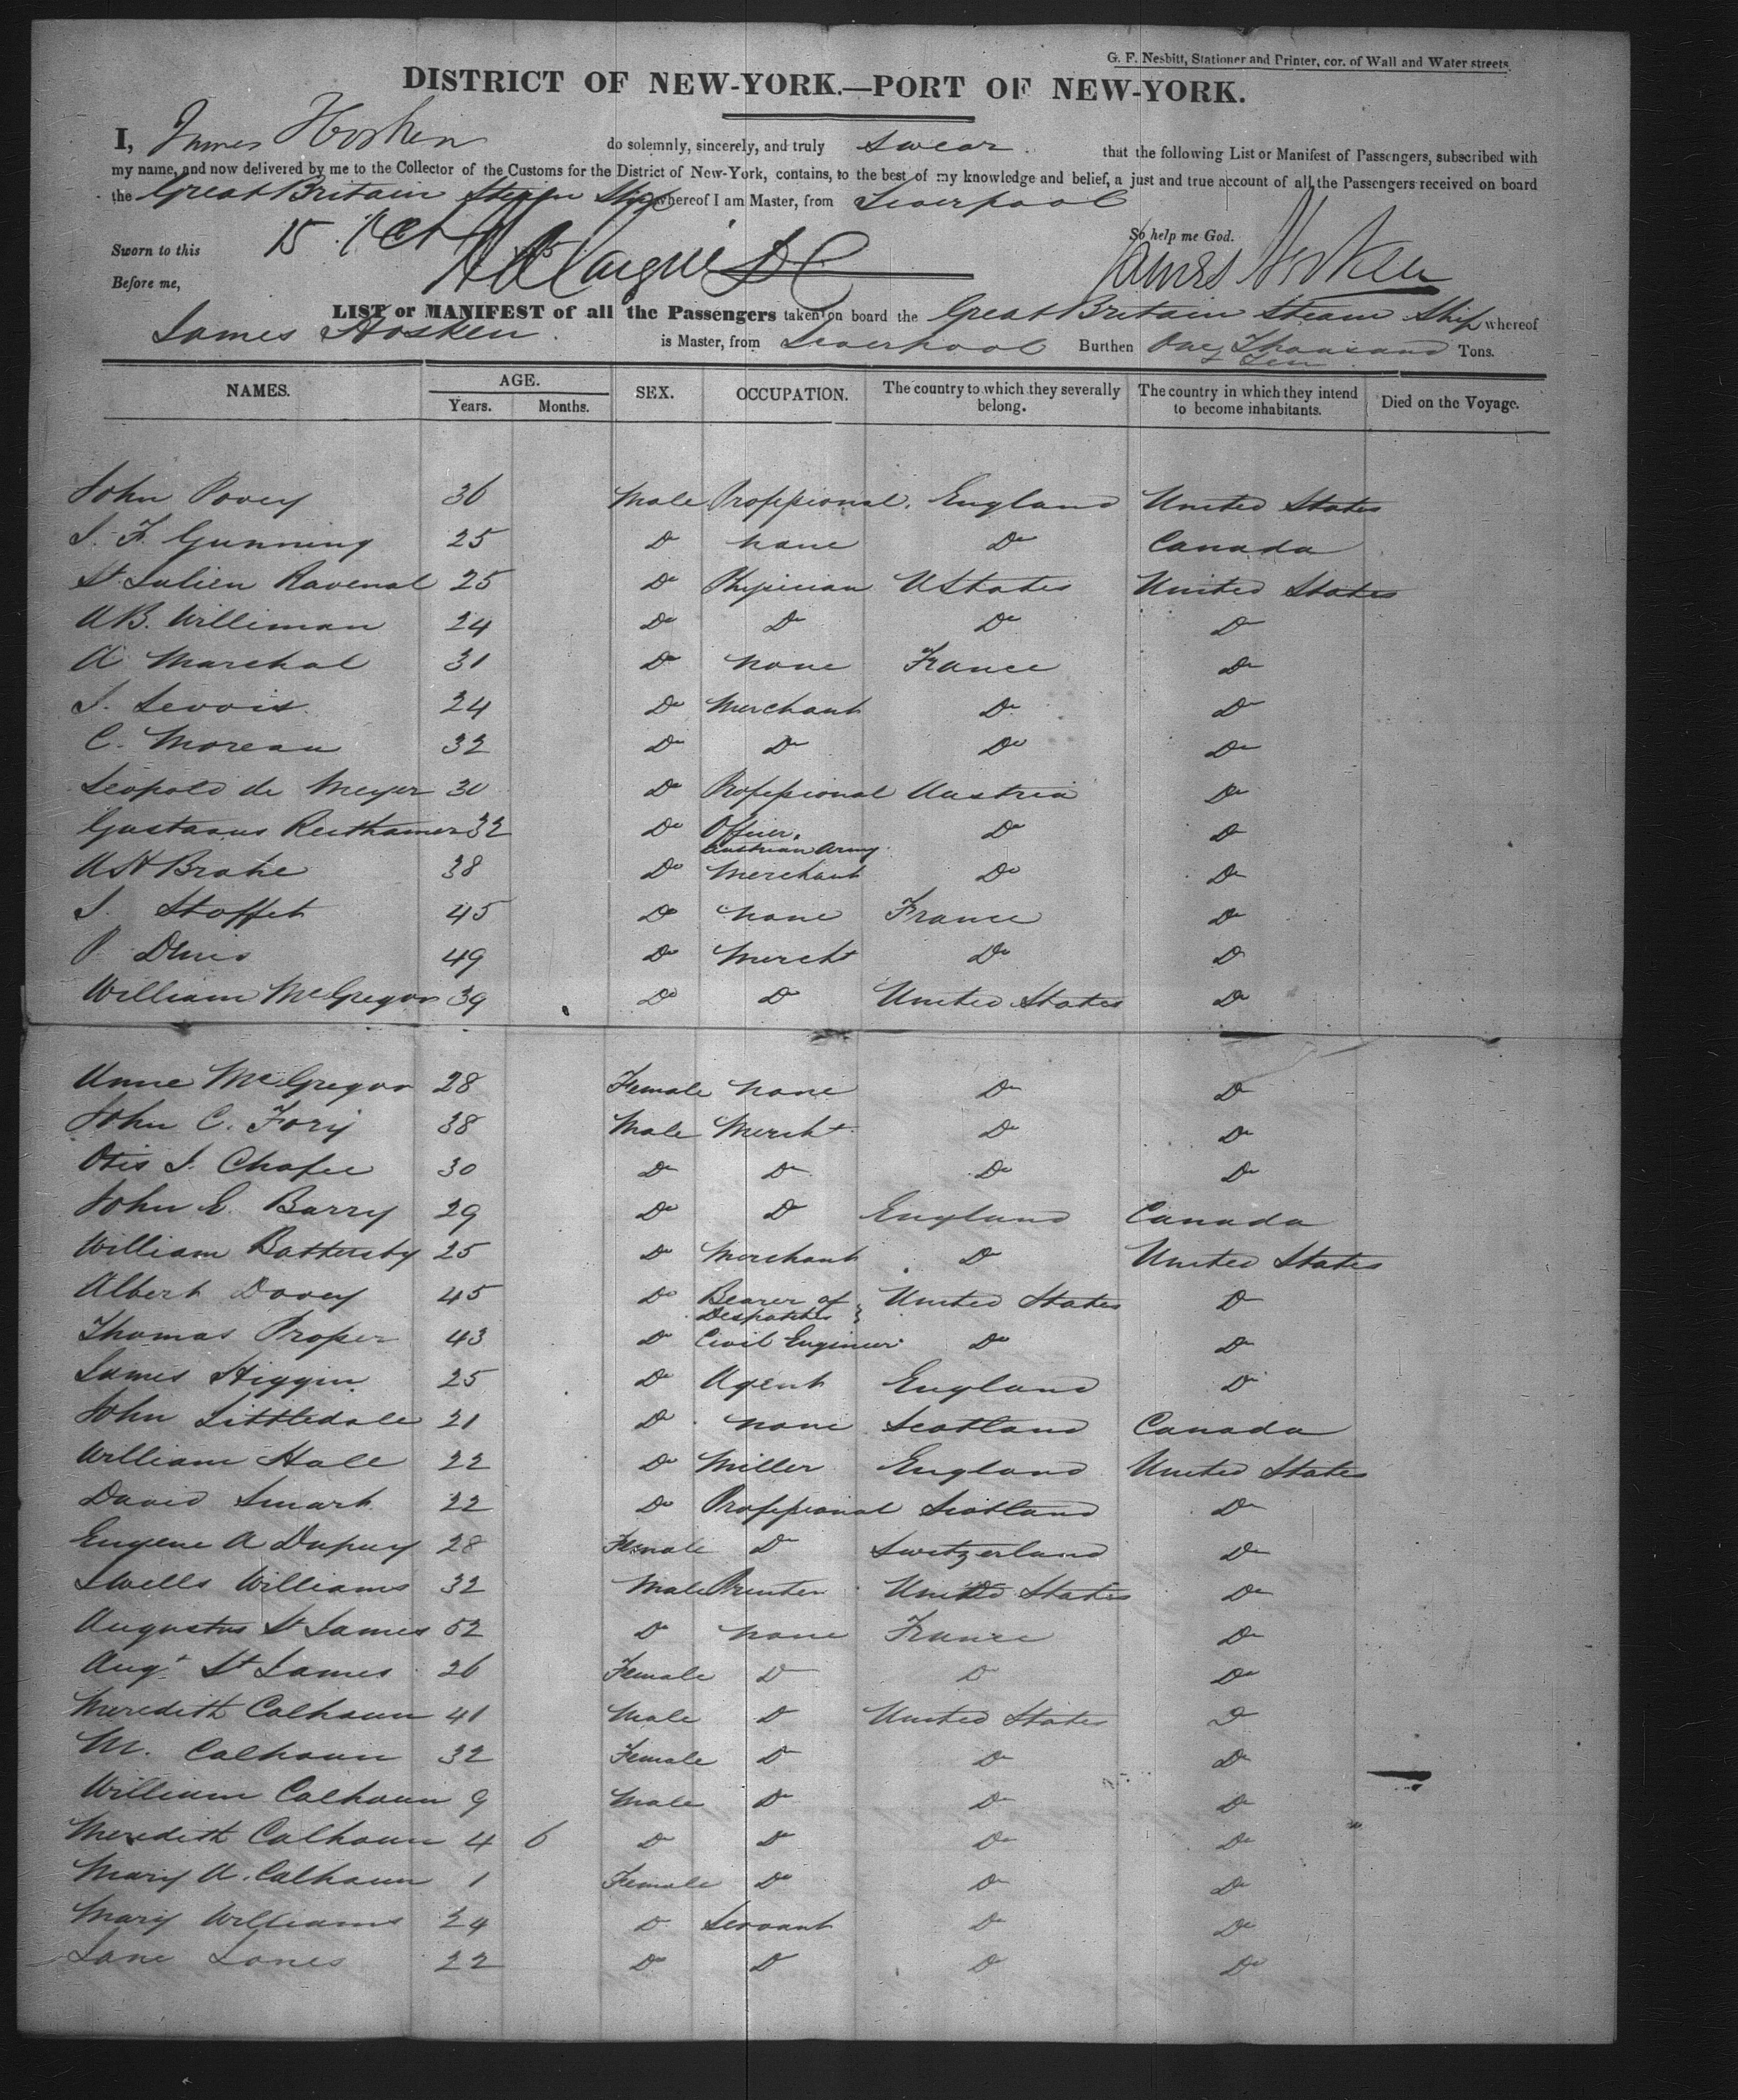 G. F. Nesbitt, Stationer and Printer, cor. of Wall and Water streets.
DISTRICT OF NEW-YORK.—PORT OF NEW-YORK.
I, James Hosken do solemnly, sincerely, and truly swear that the following List or Manifest of Passengers, subscribed with
my name, and now delivered by me to the Collector of the Customs for the District of New-York, contains, to the best of my knowledge and belief, a just and true account of all the Passengers received on board
the Great Britain Steam Ship whereof I am Master, from Liverpool
Sworn to this 15 Oct So help me God.
Before me, James Hosken
LIST or MANIFEST of all the Passengers taken on board the Great Britain Steam Ship whereof
James Hosken. is Master, from Liverpool Burthen One Thousand & Ten Tons.
NAMES. AGE. Years. Months. SEX. OCCUPATION. The country to which they severally belong. The country in which they intend to become inhabitants. Died on the Voyage.
John Povey 36 Male Professional. England United States
J. F. Gunning 25 Do none Do Canada
St. Julien Ravenal 25 Do Physician UStates United States
AB. Williman 24 Do Do Do Do
A Marchal 31 Do none France Do
J. Levois. 24 Do Merchant Do Do
C. Moreau 32 Do Do Do Do
Leopold de Meyer 30 Do Professional Austria Do
Gustavus 32 Do Officer. Austrian Army. Do Do
AH Brahe 38 Do Merchant Do Do
J. Stoffet 45 Do none France Do
P Denis 49 Do Mercht Do Do
William McGregor 39 Do Do United States Do
Anne McGregor 28 Female none Do Do
John C. 38 Male Mercht Do Do
Otis J. Chafee 30 Do Do Do Do
John E. Barry 29 Do Do England Canada
William Battersby 25 Do Merchant Do United States
Albert Dovey 45 Do Bearer of Despatches United States Do
Thomas Proper 43 Do Civil Engineer Do Do
James Higgin. 25 Do Agent England Do
John Littledale 21 Do none Scotland Canada
William Hall 22 Do Miller England United States
David Smart 22 Do Professional Scotland Do
Eugene A Dupuy 28 Female Do Switzerland Do
SWells Williams 32 Male Printer United States Do
Augustus St James 52 Do none France Do
Augt St James 26 Female Do Do Do
Meredith Calhoun 41 Male Do United States Do
M. Calhoun 32 Female Do Do Do
William Calhoun 9 Male Do Do Do
Meredith Calhoun 4 6 Do Do Do Do
Mary A. Calhoun 1 Female Do Do Do
Mary Williams 24 Do Servant Do Do
Jane Jones 22 Do Do Do Do